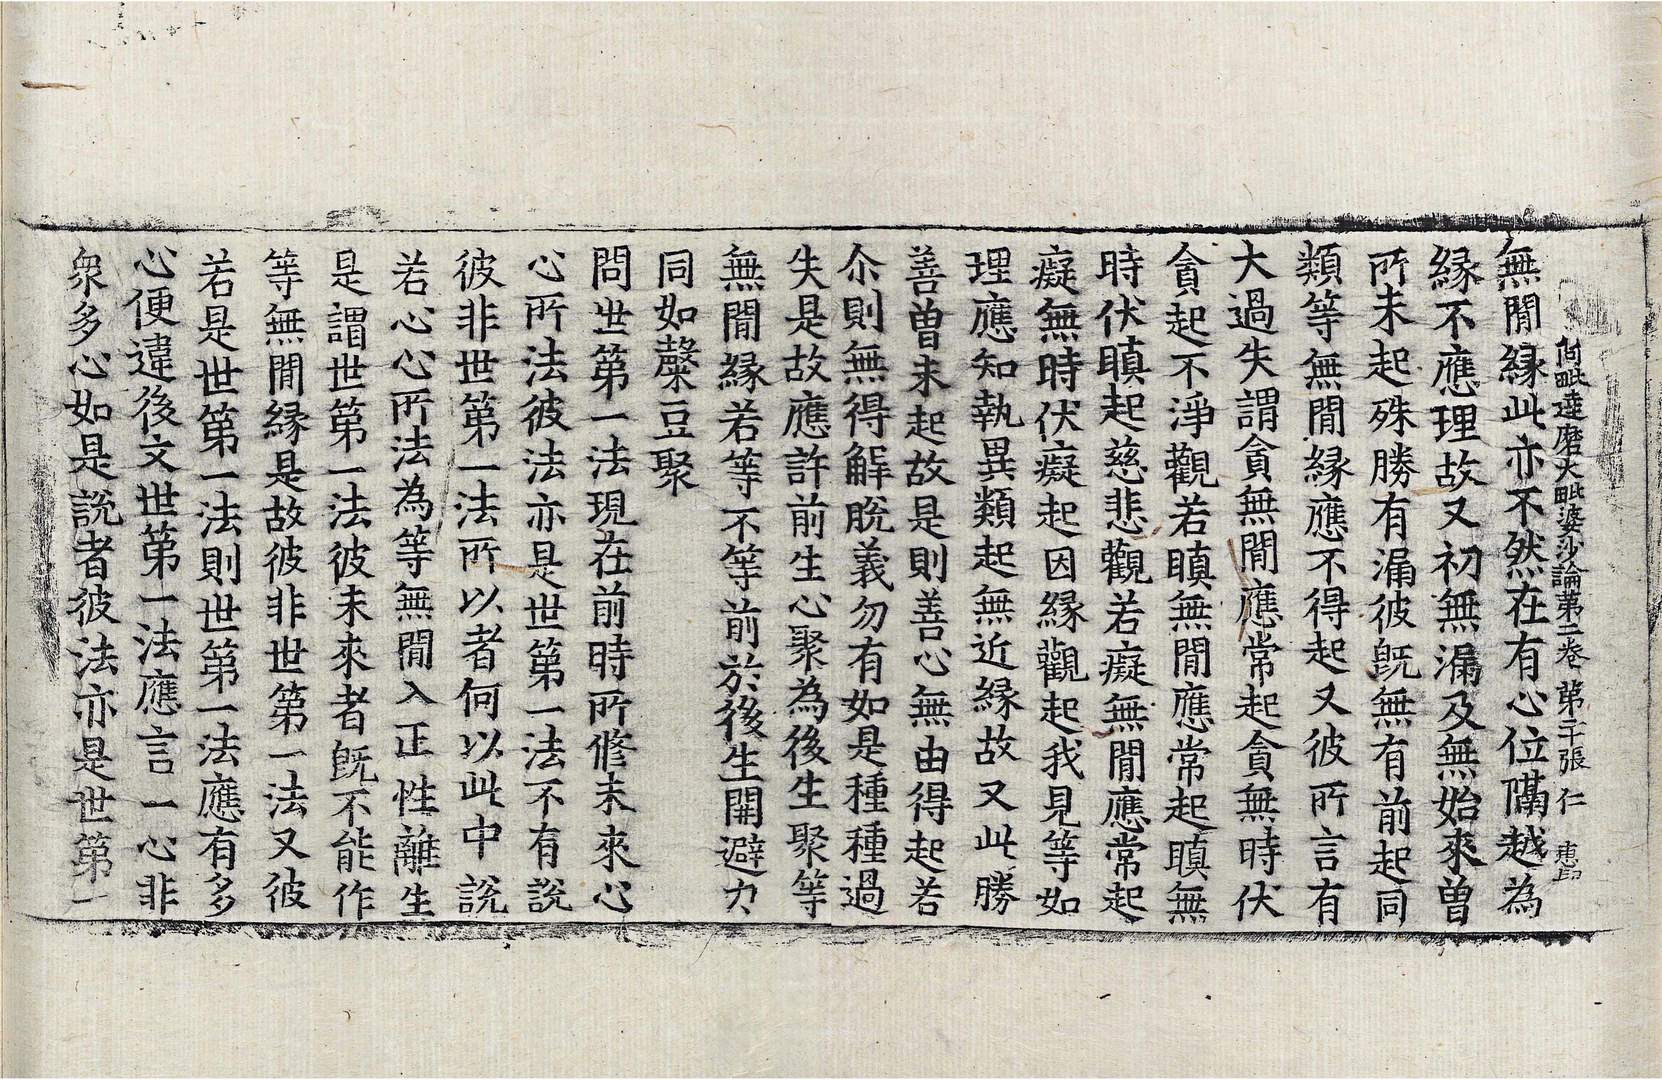 阿毗達磨大毗婆沙論第二卷 第二十張 仁 惠印
無間縁此亦不然在有心位隔越為
縁不應理故又初無漏及無始來曾
所未起殊勝有漏彼旣無有前起同
類等無間縁應不得起又彼所言有
大過失謂貪無間應常起貪無時伏
貪起不淨觀若瞋無間應常起瞋無
時伏瞋起慈悲觀若癡無間應常起
癡無時伏癡起因縁觀起我見等如
理應知執異類起無近縁故又此勝
善曾未起故是則善心無由得起若
尒則無得解脫義勿有如是種種過
失是故應許前生心聚為後生聚等
無間縁若等不等前於後生開避力
同如糵豆聚
問世第一法現在前時所修未來心
心所法彼法亦是世第一法不有說
彼非世第一法所以者何以此中說
若心心所法為等無間入正性離生
是謂世第一法彼未來者旣不能作
等無間縁是故彼非世第一法又彼
若是世第一法則世第一法應有多
心便違後文世第一法應言一心非
衆多心如是說者彼法亦是世第一